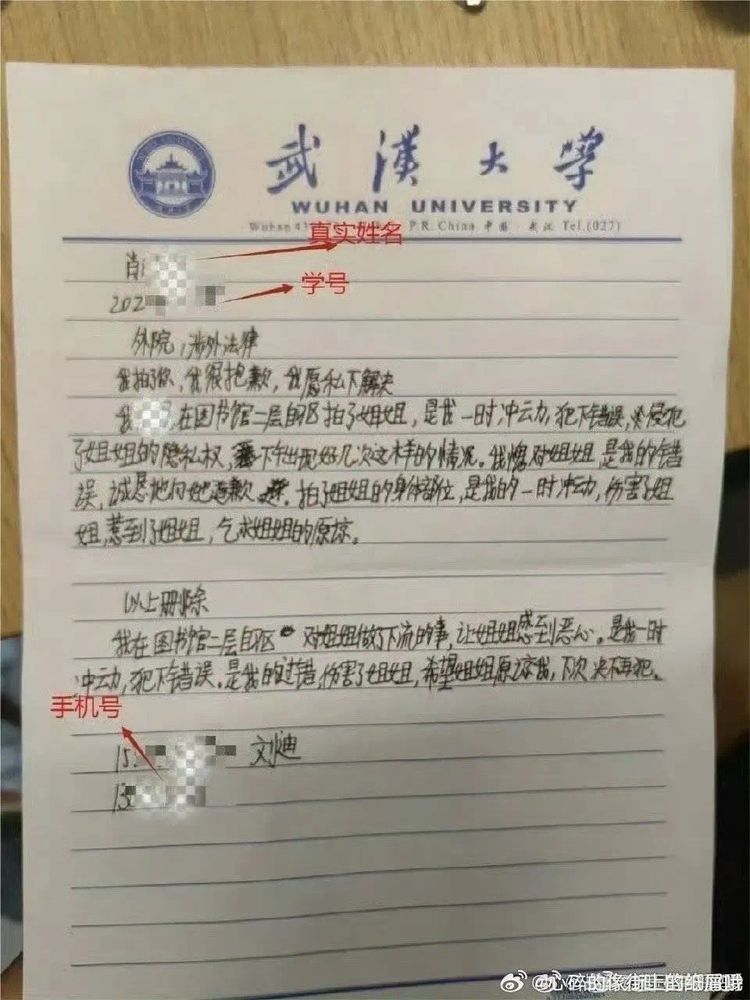 武漢大学
WUHAN UNIVERSITY
Wuhan 43 P.R. China 中国·武汉 Tel.(027)
真实姓名
肖
202
学号
外院，涉外法律
我拍了你，我很抱歉，我愿私下解决
我 ，在图书馆二层自习区拍了姐姐，是我一时冲动，犯下错误，侵犯
了姐姐的隐私权，下车出现好几次这样的情况。我愧对姐姐，是我的错
误，诚恳地向她道歉，拍了姐姐的身体部位，是我的一时冲动，伤害了姐
姐，惹到了姐姐，乞求姐姐的原谅。
以上删除
我在图书馆二层自习区 对姐姐做了下流的事，让姐姐感到恶心。是我一时
冲动，犯下错误。是我的过错，伤害了姐姐，希望姐姐原谅我，下次决不再犯。
手机号
15 刘迪
13